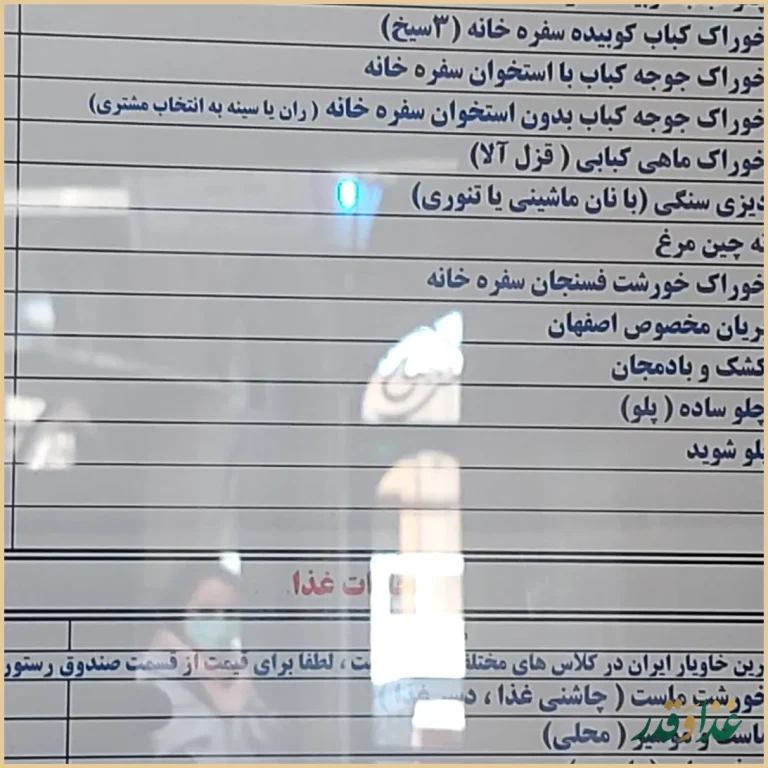 خوراک کباب کوبیده سفره خانه (۳سیخ)
خوراک جوجه کباب با استخوان سفره خانه
خوراک جوجه کباب بدون استخوان سفره خانه ( ران یا سینه به انتخاب مشتری)
خوراک ماهی کبابی ( قزل آلا)
دیزی سنگی (با نان ماشینی یا تنوری)
ه چین مرغ
خوراک خورشت فسنجان سفره خانه
ریان مخصوص اصفهان
کشک و بادمجان
چلو ساده ( پلو)
لو شوید
ات غذا
رین خاویار ایران در کلاس های مختلف ت ، لطفا برای قیمت از قسمت صندوق رستور
خورشت ماست ( چاشنی غذا ، دسر غذا )
ماست و موسیر ( محلی)
غذا و قدر